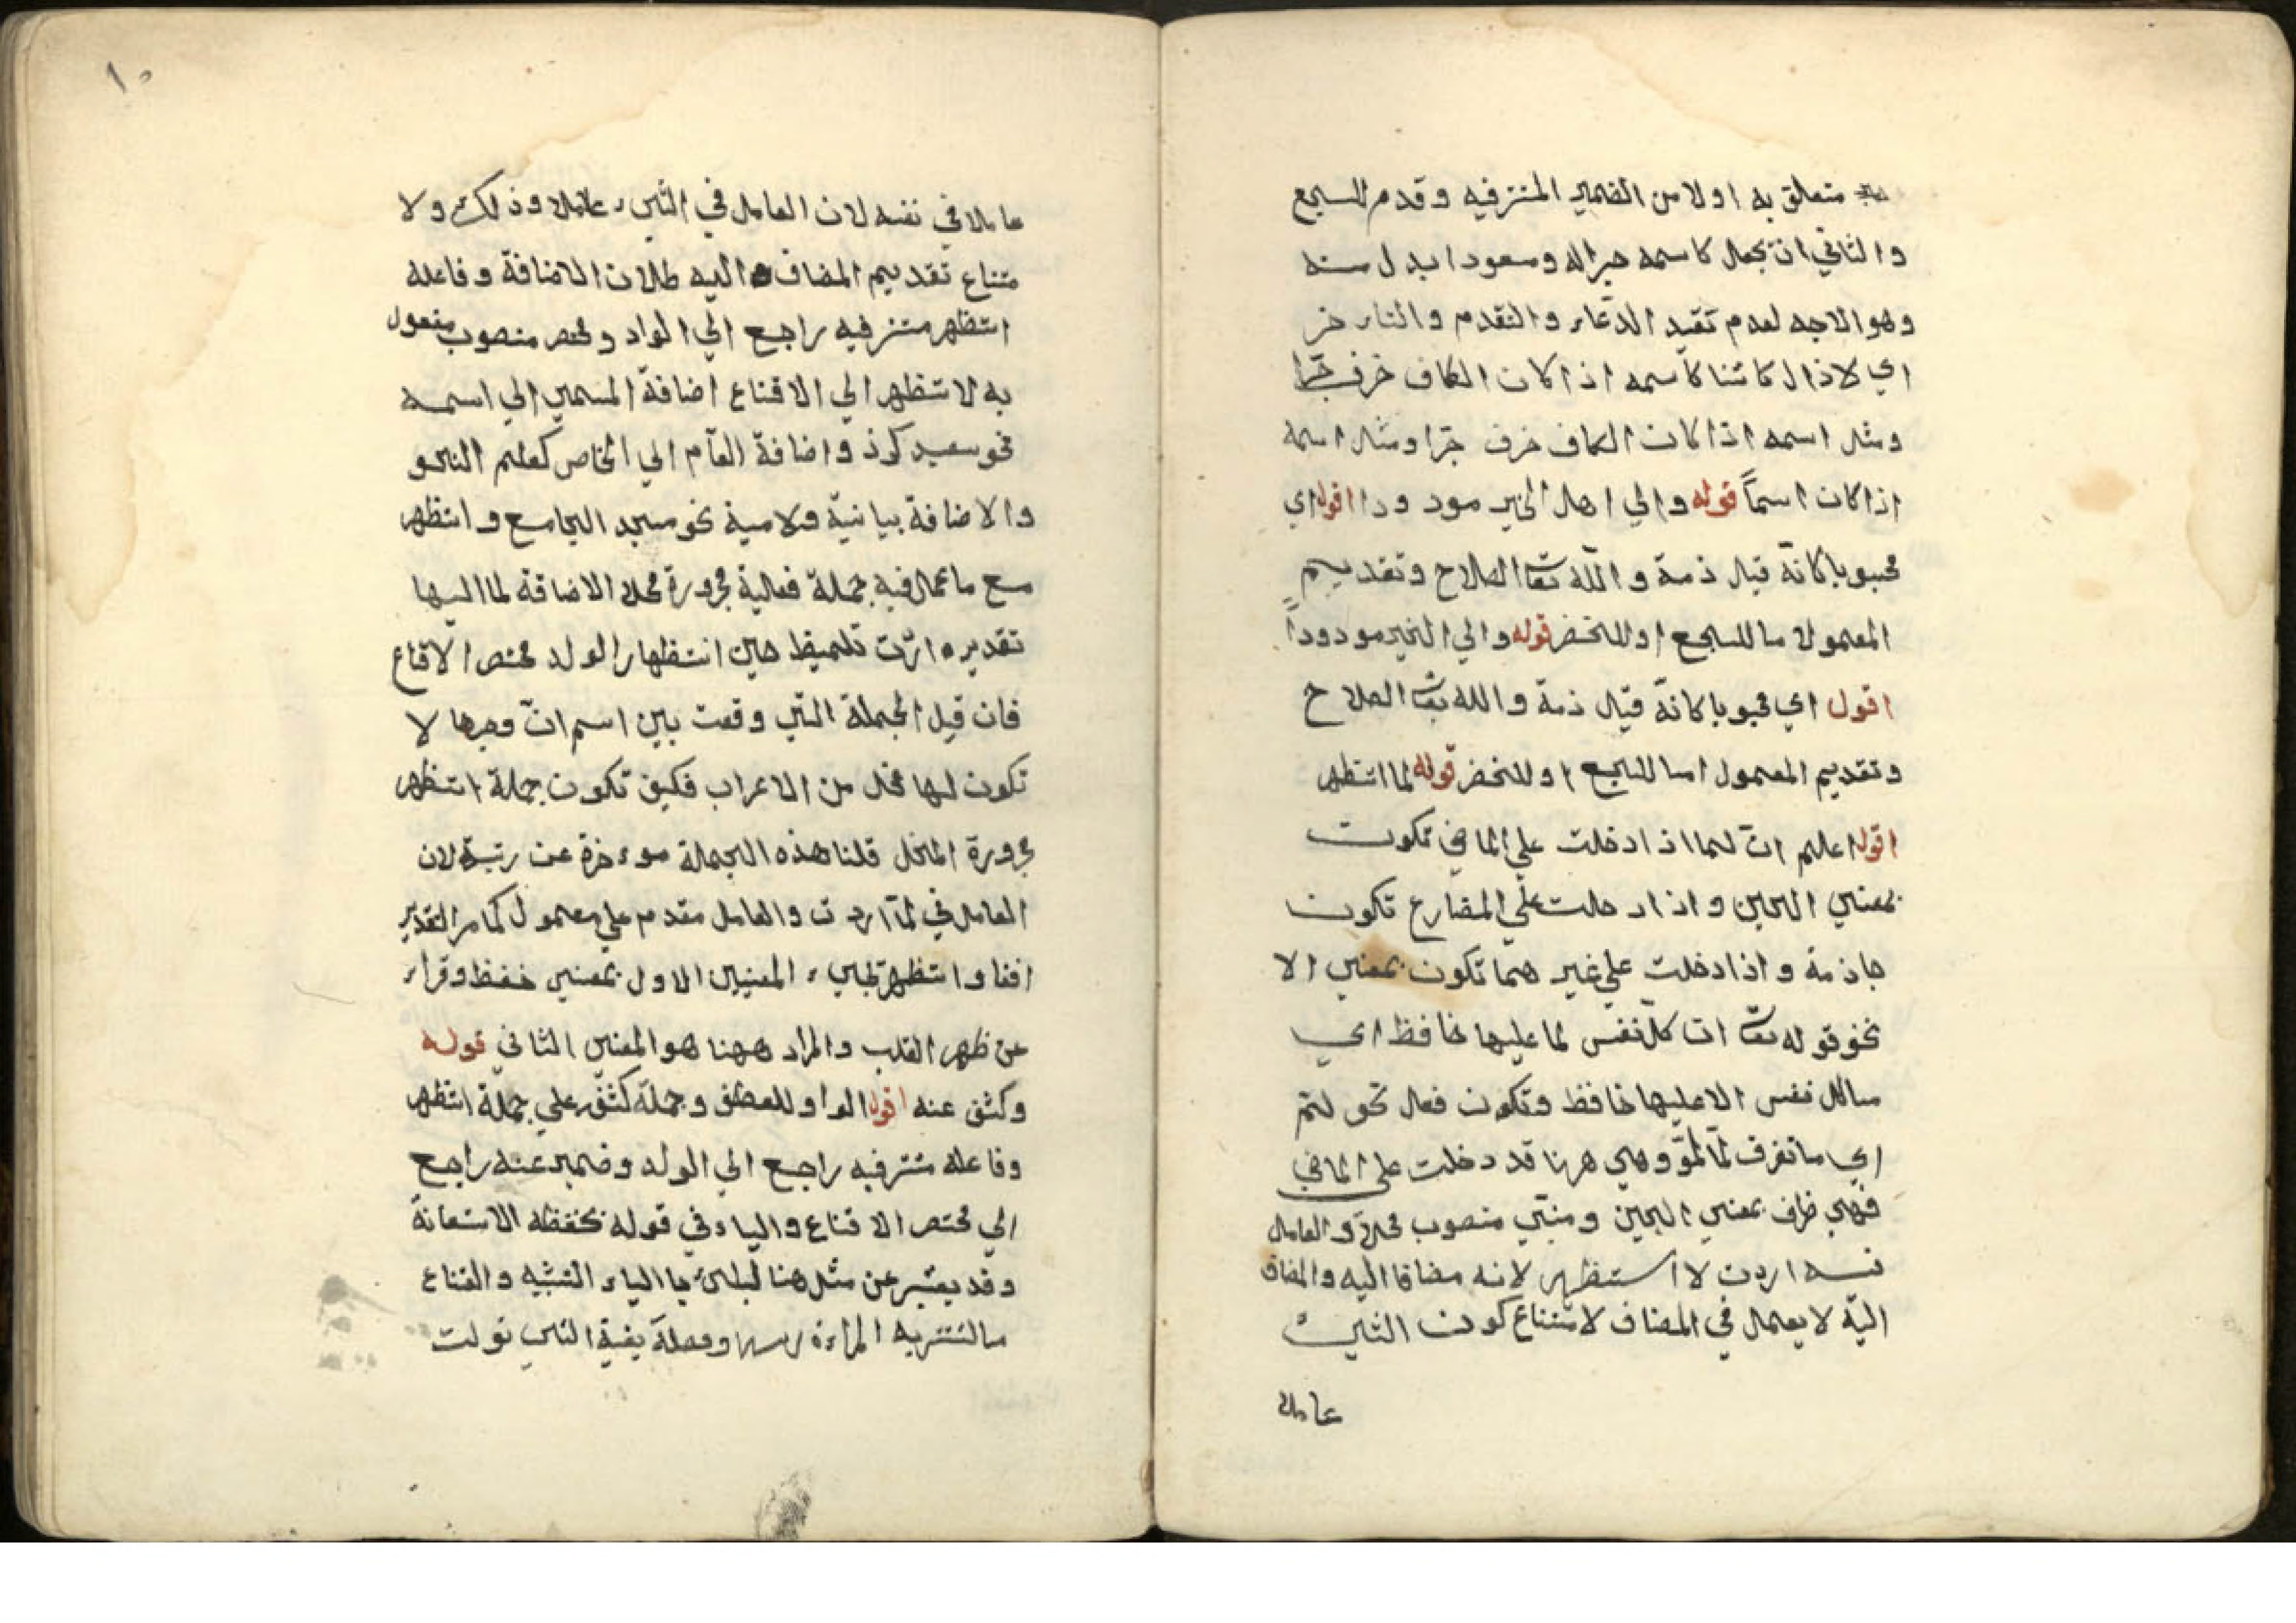 متعلق به اولا من الضمير المستتر فيه وقدم للسجع
والثاني ان يجعل كاسمه خبر اله ومسعودا بدل منه
وهو الاجه لعدم تقيد الدعاء والتقدم والتاء خر
اي لا ذال كائنا كاسمه اذا كان الكاف حرف جرا
ومثل اسمه اذا كان الكاف حرف جرا ومثل اسمه
اذا كان اسماً قوله والي اهل الخير مود ودا اقول اي
محبوبا كانّه قيل ذمة والله تعا الصلاح وتقديم
المعمول اما للسجع او للخضر قوله والي الخير مودوداً
اقول اي محبوبا كانّه قيل ذمة والله تعا الصلاح
وتقديم المعمول اما للسجع او للخضر قوله لما انتظهر
اقول اعلم انّ لما اذا دخلت علي الماضي تكون
بمعني الحين واذا دخلت علي المضارع تكون
جاذمة واذا دخلت علي غير هما تكون بمعني الا
نحو قوله تعا ان كل نفس لما عليها حافظ اي
ما كل نفس الا عليها حافظ وتكون فعل نحو لم
اي ما تفرق لمّا لموّ وهي ههنا قد دخلت علي الماضي
فهي ظرف بمعني الحين ومبني منصوب محلا والعامل
فيه اردت لا استظهر لانه مضافا اليه والمضاف
اليه لا يعمل في المضاف لامتناع كون الشيء
عاملا
١٠
عاملا في نفسه لان العامل في الشيء عاملا وذلك ولا
متناع تقديم المضاف اليه طلان الاضافة وفاعله
استظهر مستتر فيه راجع الي الولد ومختصر منصوب مفعول
به لاستظهر الي الاقناع اضافة المسمي الي اسمه
نحو سعيد كرذ واضافة العام الي الخاص كعلم النحو
والاضافة بيانية ولامية نحو مسجد الجامع واستظهر
مع ما عمل فيه جملة فعلية مجرورة محلا الاضافة لما اليها
تقديره اردت تلميظ حين استظهار الولد مختصر الاقناع
فان قيل الجملة التي وقعت بين اسم انّ وخبرها لا
تكون لها محل من الاعراب فكيف تكون جملة استظهر
مجرورة المحل قلنا هذه الجملة موءخرة عن رتبته لان
العامل في لما اردت والعامل مقدم علي معمول كما مر التقدير
انفا واستظهر تجيء المعنيين الاول بمعني حفظ وقراء
عن ظهر القلب والمراد ههنا هو المعني الثاني قوله
وكشف عنه اقول الواو للعطف وجملة كشف علي جملة استظهر
وفاعله مستتر فيه راجع الي الولد وضمير عنه راجع
الي مختصر الاقناع والباء في قوله بحفظه الاستعانة
وقد يعتبر عن مثل هنا الباء التشبيه والقناع
ما تستتر به المراءة راسها بقية التي تولت